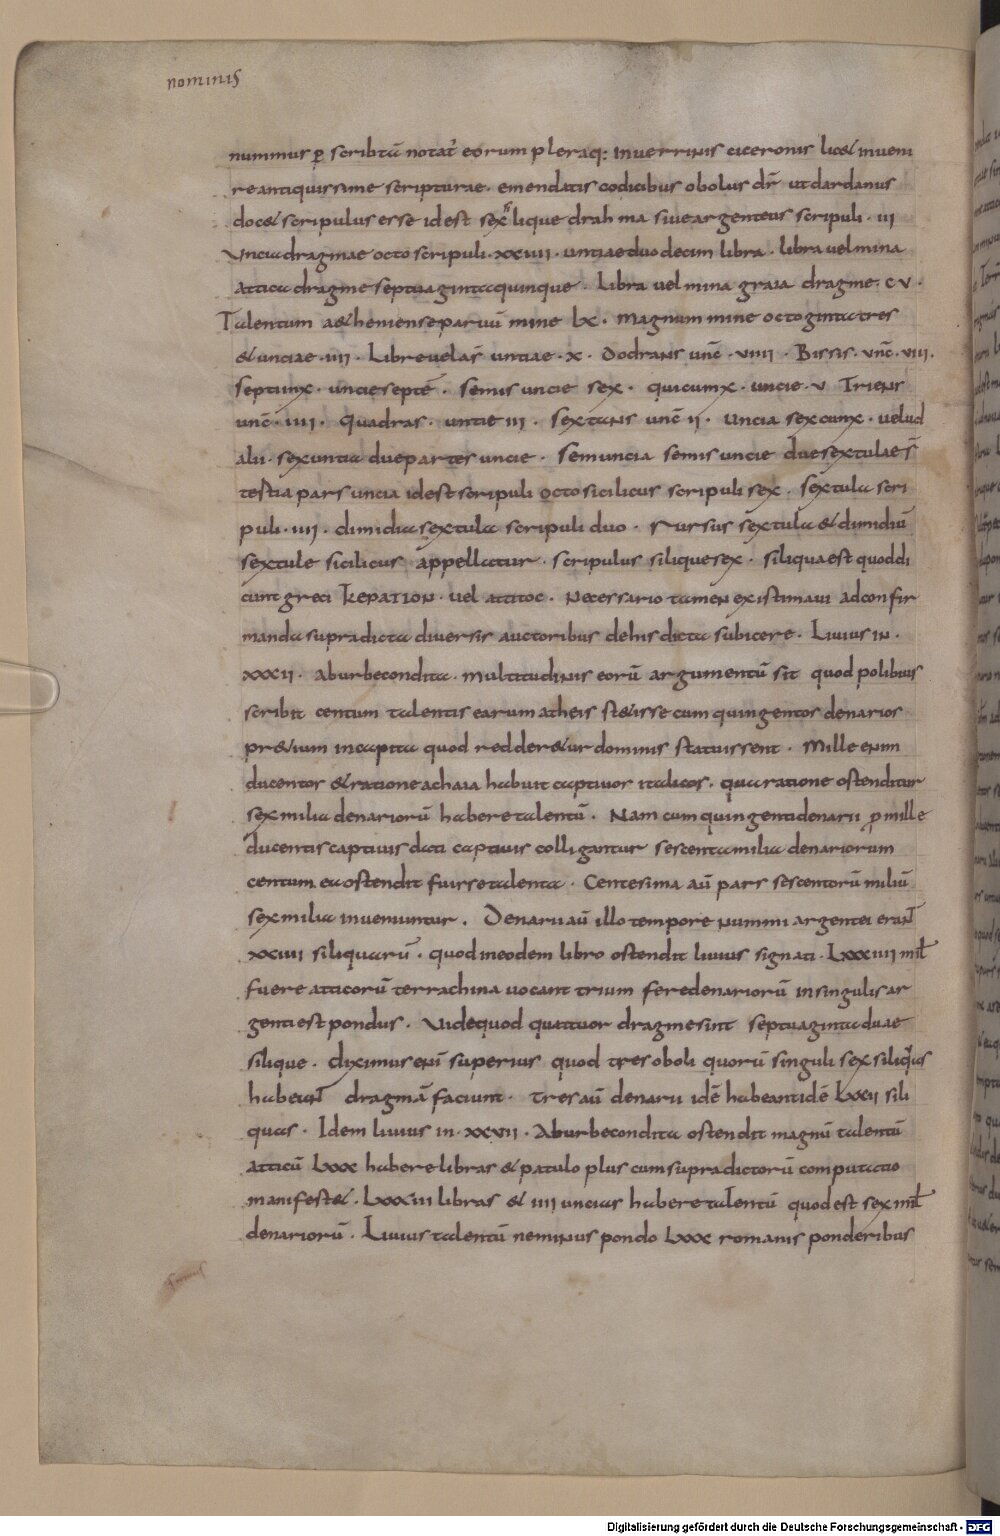 nominis
nummus ꝑ scribtū notat᷑ eorum pleraq; inverrinis ciceronis lic& inveni
re antiquissime scripturae · emendatis codicibus obolus dr̄ ut dardanus
doc& scripulus esse id est sex siliquę drahma sive argenteus scripuli · iii
Uncia dragmae octo scripuli · xxiiii · untiae duodecim libra · libra vel mina
attica dragme septuaginta quinque · Libra vel mina graia dragme · cv ·
Talentum a&heniense parvū mine lx · magnum mine octoginta tres
& unciae · iiii · Libre vel aś untiae · x · dodrans unc̄ · viiii · Bissis · unc̄ · viii ·
septunx · uncie septē · semis uncie sex · quicunx · uncie · v Triens
unc̄ · iiii · quadras · untie iii · sextans unc̄ ii · uncia sexcunx · velud
alii · sexuntia due partes uncie · semuncia semis uncie due sextulae s̄
tertia pars uncia id est scripuli octo sicilicus scripuli sex · sextula scri
puli · iiii · dimidia sextula scripuli duo · rursus sextula & dimidiū
sextule sicilicus appellatur · scripulus silique sex · siliqua est quod di
cunt greci KEPATION · vel attitoc · necessario tamen existimavi ad confir
manda supradicta diversis auctoribus de his dicta subicere · Livius in ·
xxxii · ab urbe condita · multitudinis eorū argumentū sit quod polibius
scribit centum talentis earum atheis st&isse cum quingentos denarios
pr&ium in capita quod redder&ur dominis statuissent · Mille enim
ducentos & ratione achaia habuit captivos italicos · qua ratione ostenditur
sex milia denariorū habere talentū · Nam cum quingenti denarii ꝓ mille
ducentis captivis dati captivis colligantur sescenta milia denariorum
centum ea ostendit fuisse talenta · Centesima aū pars sescentorū miliū
sex milia inveniuntur · Denarii aū illo tempore nummi argentei erant̄
xxiiii siliquarū · quod in eodem libro ostendit livius signati · Lxxxiiii mil̄
fuere atticorū terrachina vocant trium fere denariorū in singulis ar
genti est pondus · Vide quod quattuor dragme sint septuaginta duae
silique · diximus eni᷑ superius quod tres oboli quorū singuli sex siliquas
habeant̄ dragmā faciunt · tres aū denarii idē habeant idē Lxxii sili
quas · Idem livius in · xxvii · Ab urbe condita ostendit magnū talentū
atticū Lxxx habere libras & patulo plus cum supradictorū computatio
manifest& · Lxxxiii libras & iiii uncias habere talentū quod est sex mil̄
denariorū · Livius talentū ne minus pondo Lxxx romanis ponderibus
Digitalisierung gefördert durch die Deutsche Forschungsgemeinschaft - DFG